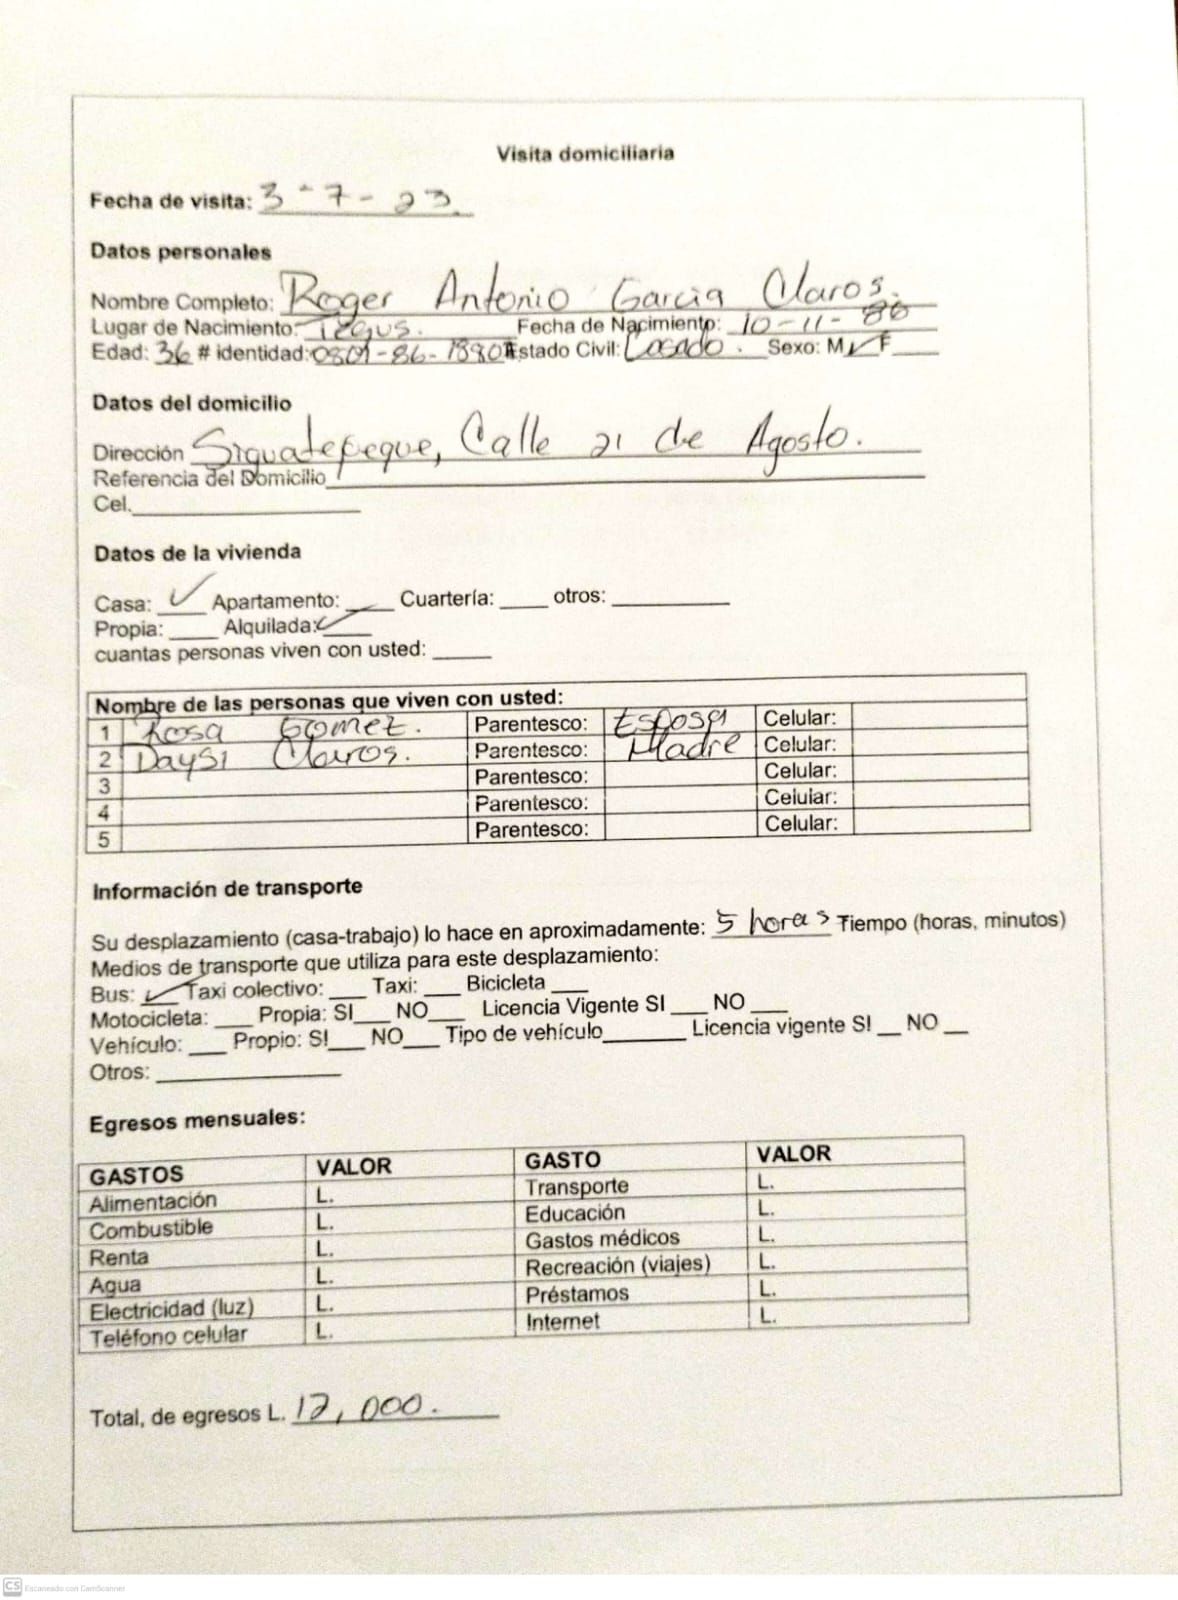 Visita domiciliaria
Fecha de visita: 3-7-23.
Datos personales
Nombre Completo: Roger Antonio Garcia Claros.
Lugar de Nacimiento: Tegus. Fecha de Nacimiento: 10-11-86
Edad: 36 # identidad: Estado Civil: Casado. Sexo: M ✓ F ___
Datos del domicilio
Dirección Siguatepeque, Calle 21 de Agosto.
Referencia del Domicilio
Cel.
Datos de la vivienda
Casa: ✓ Apartamento: ____ Cuartería: ____ otros: ____
Propia: ____ Alquilada: ✓
cuantas personas viven con usted: ____
Nombre de las personas que viven con usted:
1 Rosa Gomez. Parentesco: Esposa Celular:
2 Daysi Claros. Parentesco: Madre Celular:
3 Parentesco: Celular:
4 Parentesco: Celular:
5 Parentesco: Celular:
Información de transporte
Su desplazamiento (casa-trabajo) lo hace en aproximadamente: 5 horas Tiempo (horas, minutos)
Medios de transporte que utiliza para este desplazamiento:
Bus: ✓ Taxi colectivo: ___ Taxi: ___ Bicicleta ___
Motocicleta: ___ Propia: SI___ NO___ Licencia Vigente SI ___ NO ___
Vehículo: ___ Propio: SI___ NO___ Tipo de vehículo______ Licencia vigente SI __ NO __
Otros: ____
Egresos mensuales:
GASTOS VALOR GASTO VALOR
Alimentación L. Transporte L.
Combustible L. Educación L.
Renta L. Gastos médicos L.
Agua L. Recreación (viajes) L.
Electricidad (luz) L. Préstamos L.
Teléfono celular L. Internet L.
Total, de egresos L. 12,000.
CS Escaneado con CamScanner